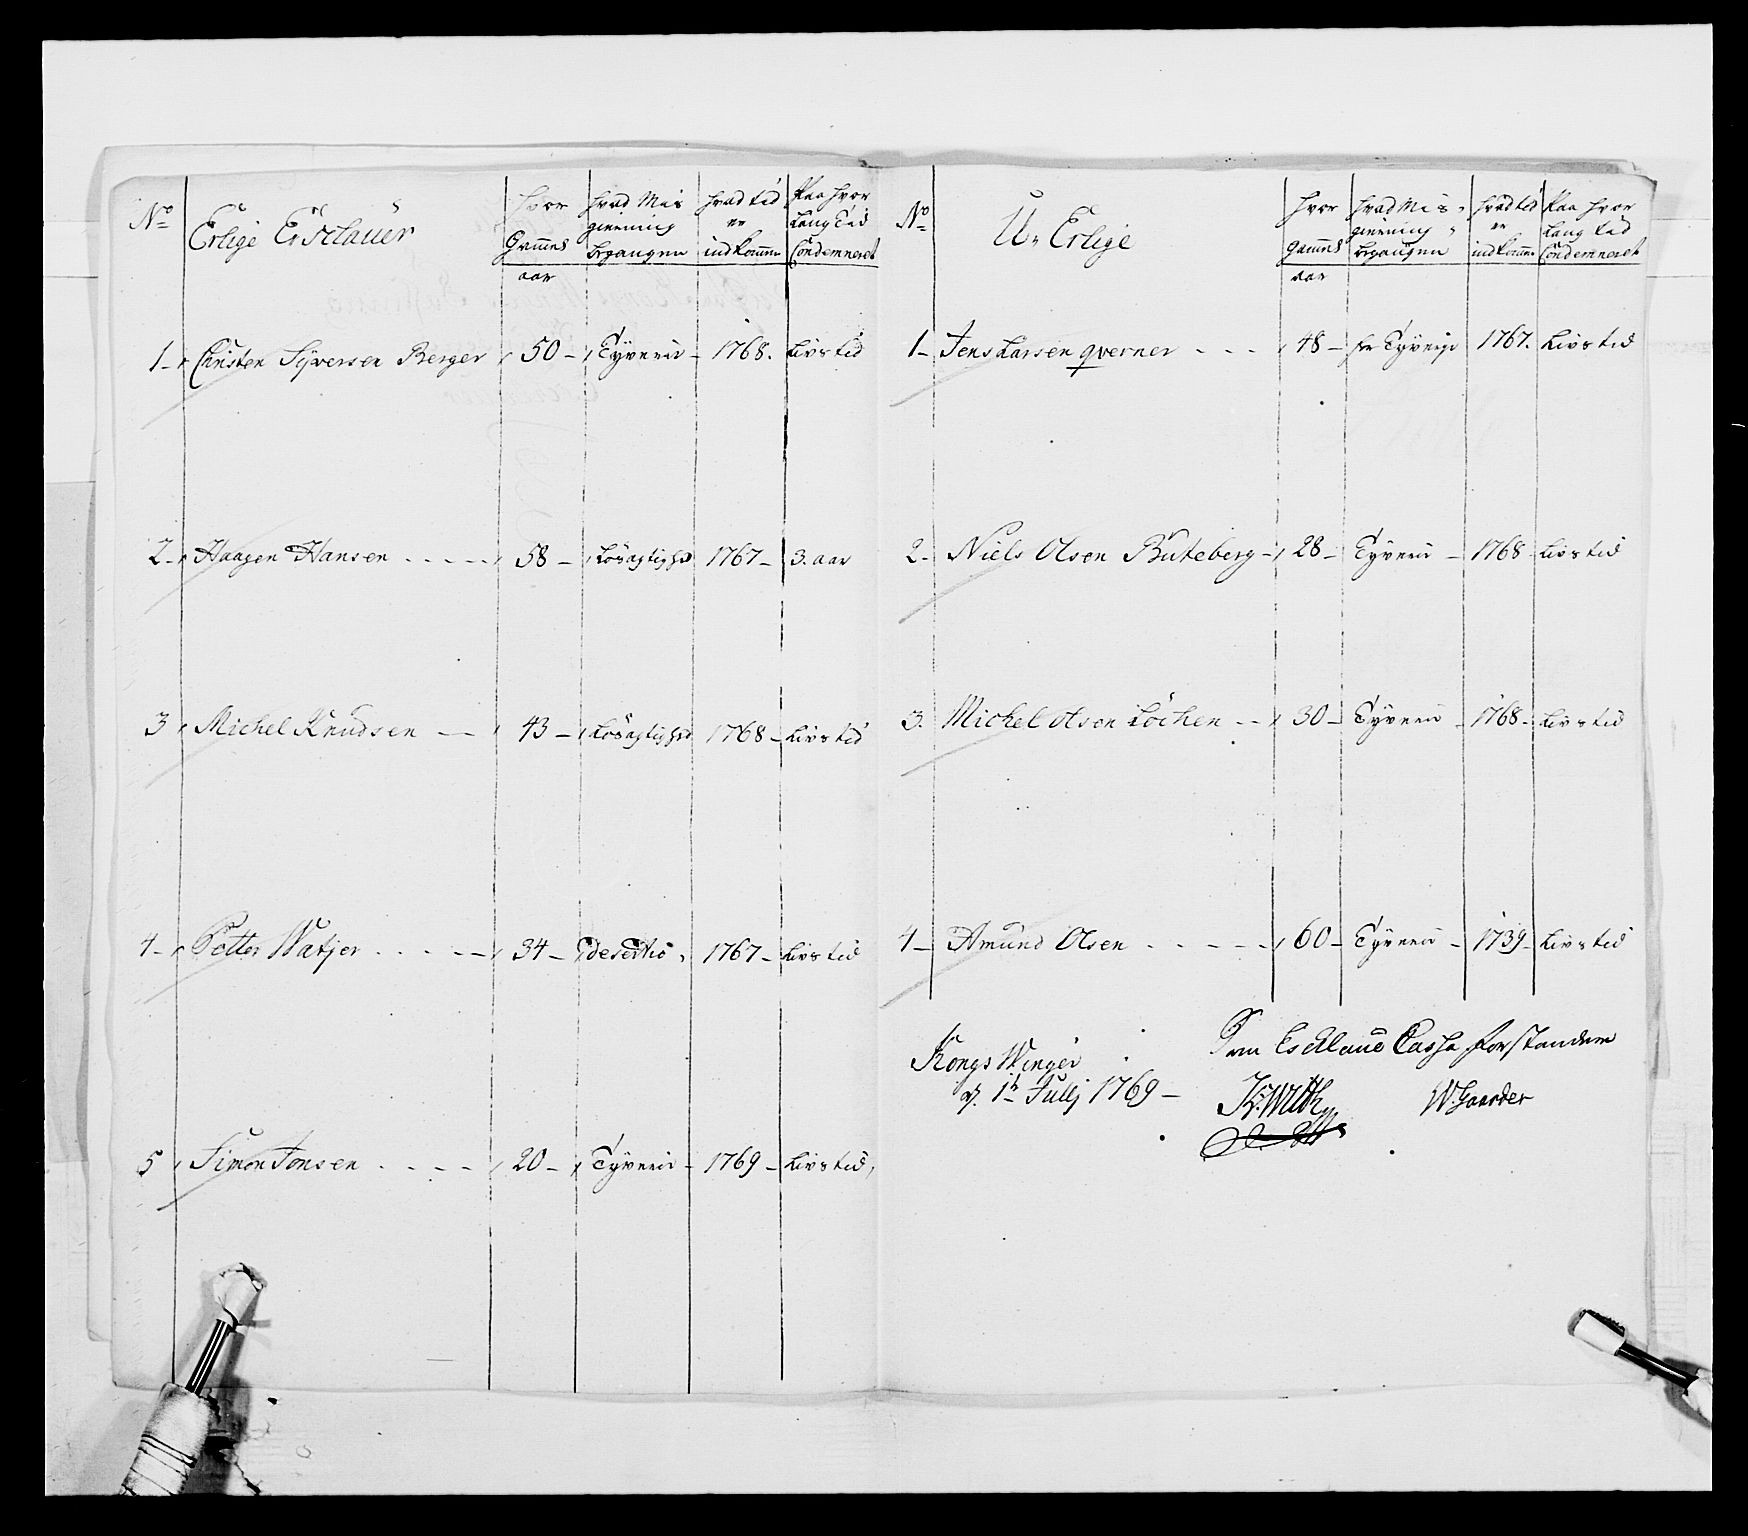 No
Erlige Esclauer
hvor
Gammel
aar
hvad Mis
gierning
begangen
hvad tid
er
indkommen
Paa hvor
Lang Tid
Condemneret
1 Christen Syversen Berger 50 Tyverie 1768. Livs tid
2 Haagen Hansen 58 Løsagtighed 1767 3. aar
3 Michel Knudsen 43 Løsagtighed 1768 Livs tid
4 Petter Watjer 34 Desertio 1767 Livs tid
5 Simon Jonsen 20 Tyverie 1769 Livs tid
No
U-Erlige
hvor
gammel
aar
hvad Mis-
gierning
begangen
hvad tid
er
indkommen
Paa hvor
Lang tid
Condemneret
1 Jens Larsen qverner 48 for Tyverie 1767. Livs tid
2 Niels Olsen Buteberg 28 Tyverie 1768 Livs tid
3. Michel Olsen Löchen 30 Tyverie 1768 Livs tid
4 Amund Olsen 60 Tyverie 1739 Livs tid
Som Esclave Cassa forstandere
Kongs Winger
d. 1t Julij 1769
W. Gaarder